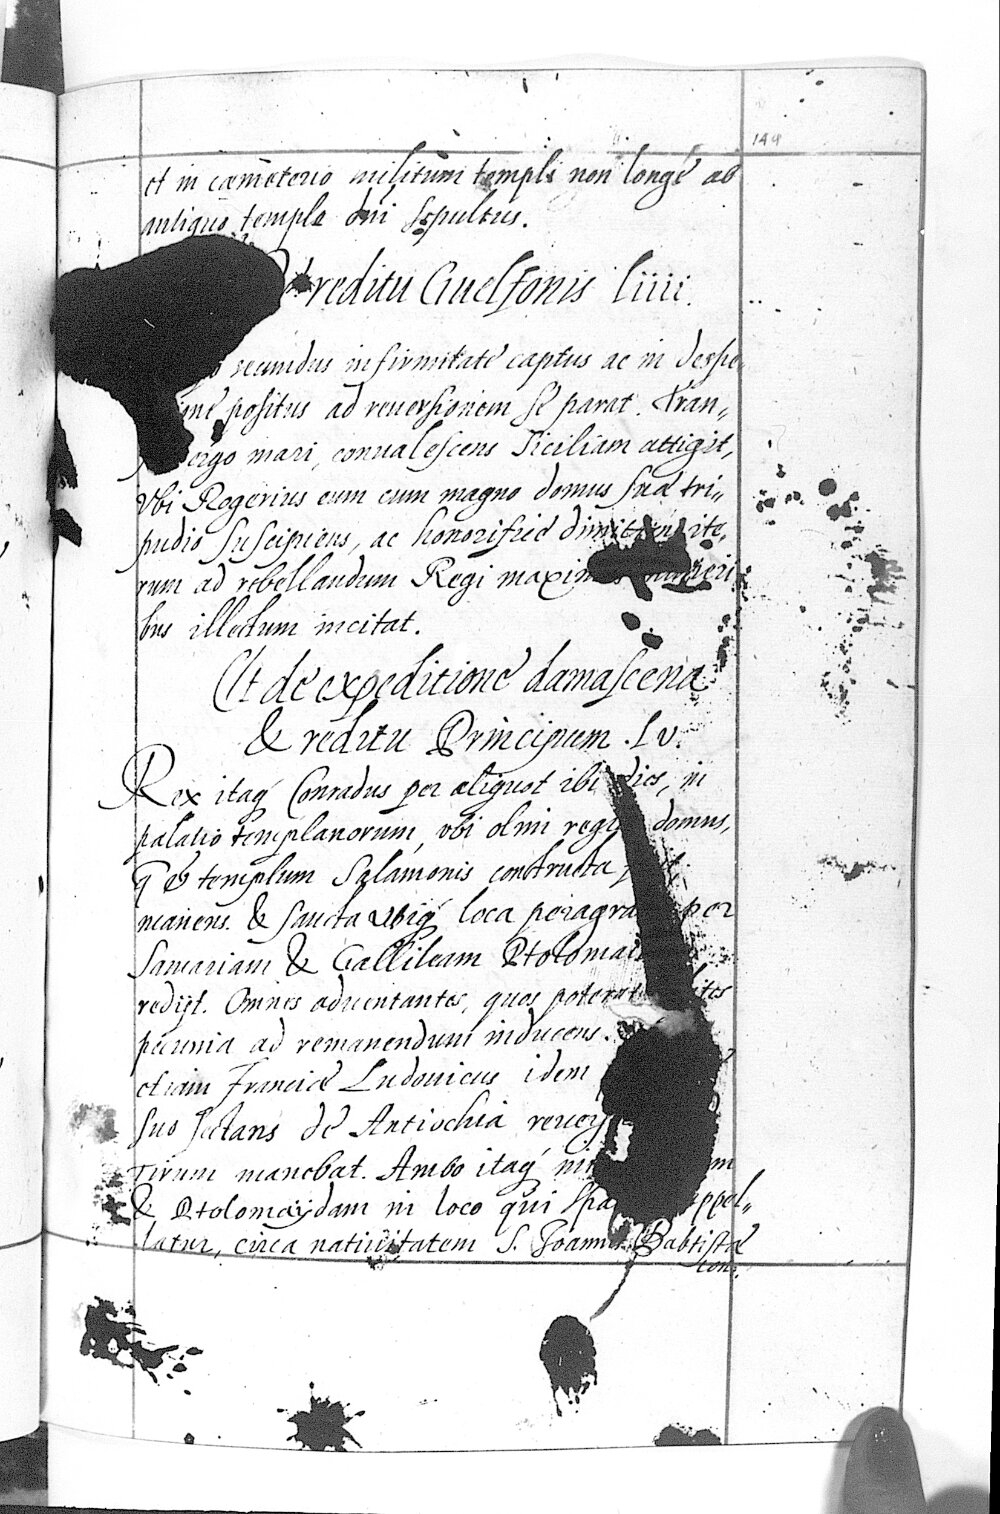 149
et in cœmeterio militum templi non longé ab
antiquo templo dni sepultus.
reditu Guelfonis liiii.
secundus infirmitate captus ac in despe
positus ad reuersionem se parat. Tran„
ergo mari, conualescens Siciliam attigit,
Vbi Rogerius eum cum magno domus suæ tri„
pudio suscipiens, ac honorificè ite„
rum ad rebellandum Regi
bus illectum incitat.
Et de expeditione damascena
& reditu Principum .lv.
Rex itaq́ Conradus per aliquot ibi dies, in
palatio templariorum, vbi olim domus,
q̃ & templum Salamonis constructa
manens. & sancta vbiq́ loca per
Samariam & Gallileam
redijt. Omnes aduentantes, quos
pecunia ad remanendum inducens.
etiam Franciæ Ludouicus idem
suo de Antiochia
Tirum manebat. Ambo itaq́
& Ptolomaydam in loco qui
latur, circa natiuitatem S. Joannis Babtistæ
con„